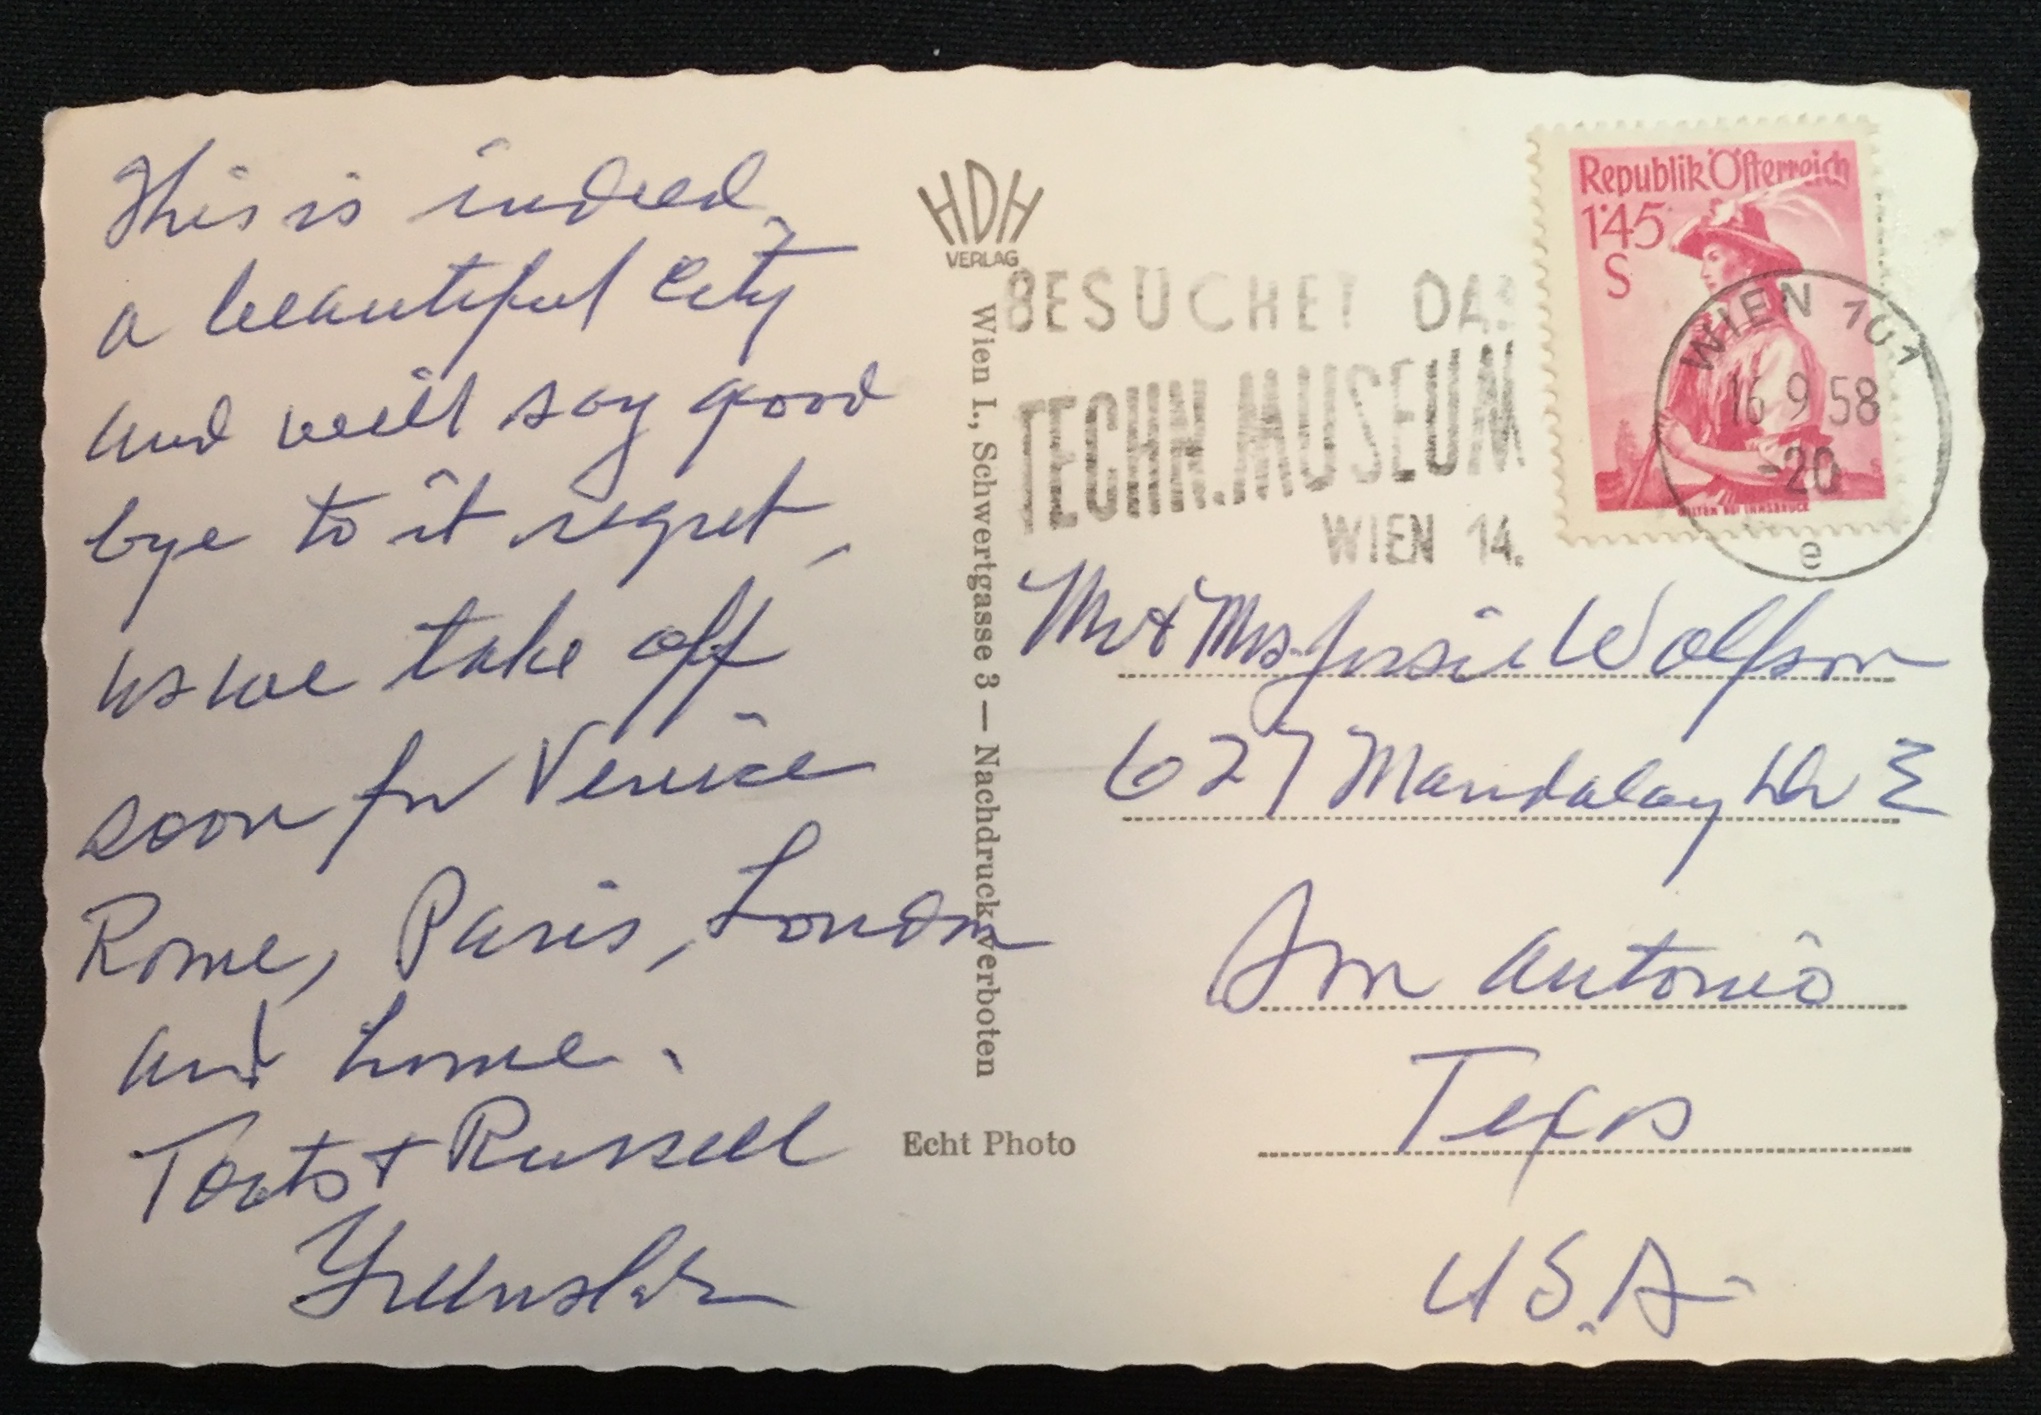 This is indeed,
a beautiful city
and will say good
bye to it regret,
as we take off
soon for Venice
Rome, Paris, London
and home.
Toots + Russell
HDH
VERLAG
Wien I., Schwertgasse 3 — Nachdruck verboten
Echt Photo
BESUCHET DAS
TECHN. MUSEUM
WIEN 14.
Republik Österreich
1'45
S
WILTEN BEI INNSBRUCK
WIEN 101
16 9 58
-20
e
Mr & Mrs. Jessie Wolfson
627 Mandalay Dr E
San Antonio
Texas
U.S.A.